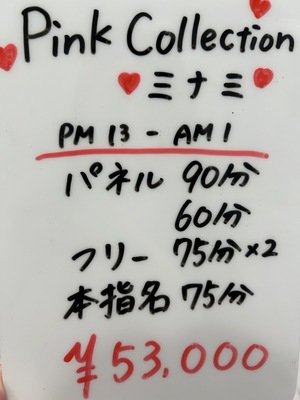 Pink Collection
ミナミ
PM 13 - AM 1
パネル 90分
60分
フリー 75分×2
本指名 75分
¥53,000